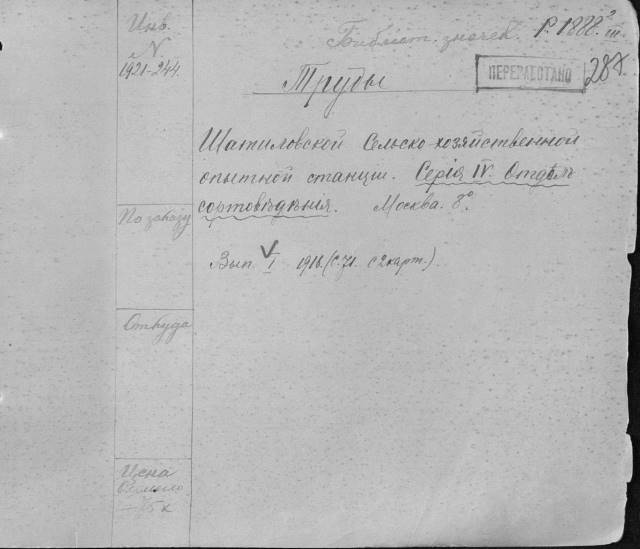 Инв.
№
1921-244.
Библіот. значек. Р 1888.²
III.
ПЕРЕРАБОТАНО
288.
Труды
Шатиловской Сельско-хозяйственной
опытной станции. Серія IV. Отдѣлъ
сортовѣдѣнія. Москва. 8°.
По заказу
Вып. I 1916. (С. 71. с 2 карт.)
Откуда
Цена